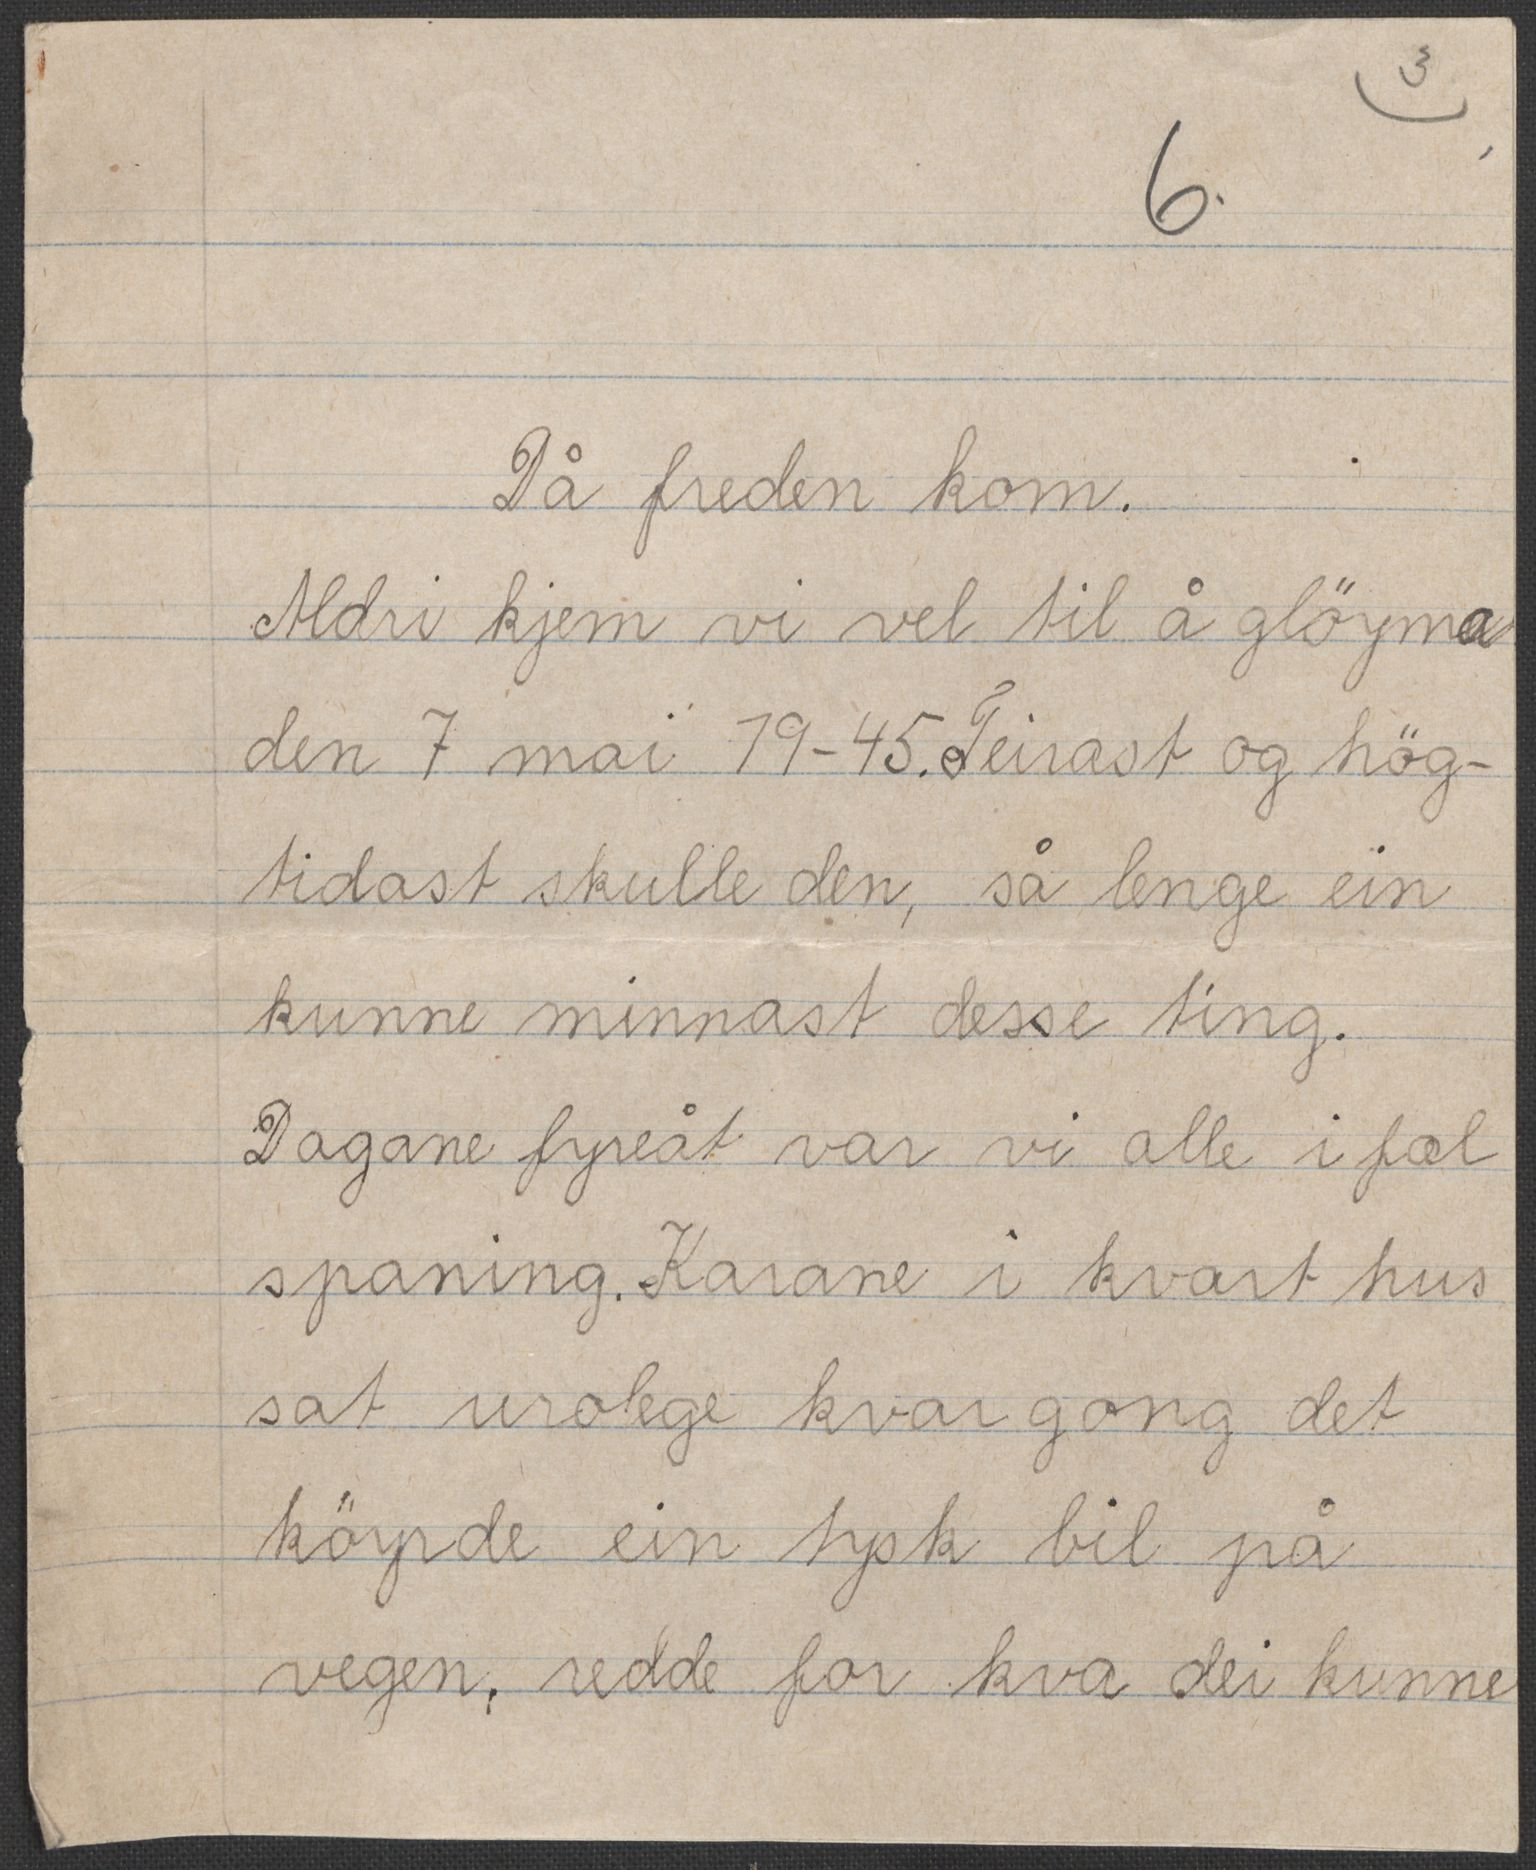 3
6.
Då freden kom.
Aldri kjem vi vel til å glöyma
den 7 mai 19-45. Feirast og hög-
tidast skulle den, så lenge ein
kunne minnast desse ting.
Dagane fyreåt var vi alle i fæl
spaning. Karane i kvart hus
sat urolege kvar gong det
köyrde ein tysk bil på
vegen, redde for kva dei kunne